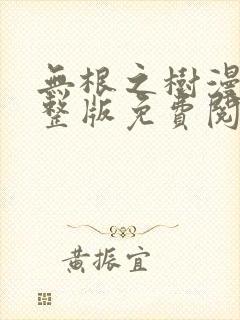 無根之樹漫
整版免費閱
黃振宜